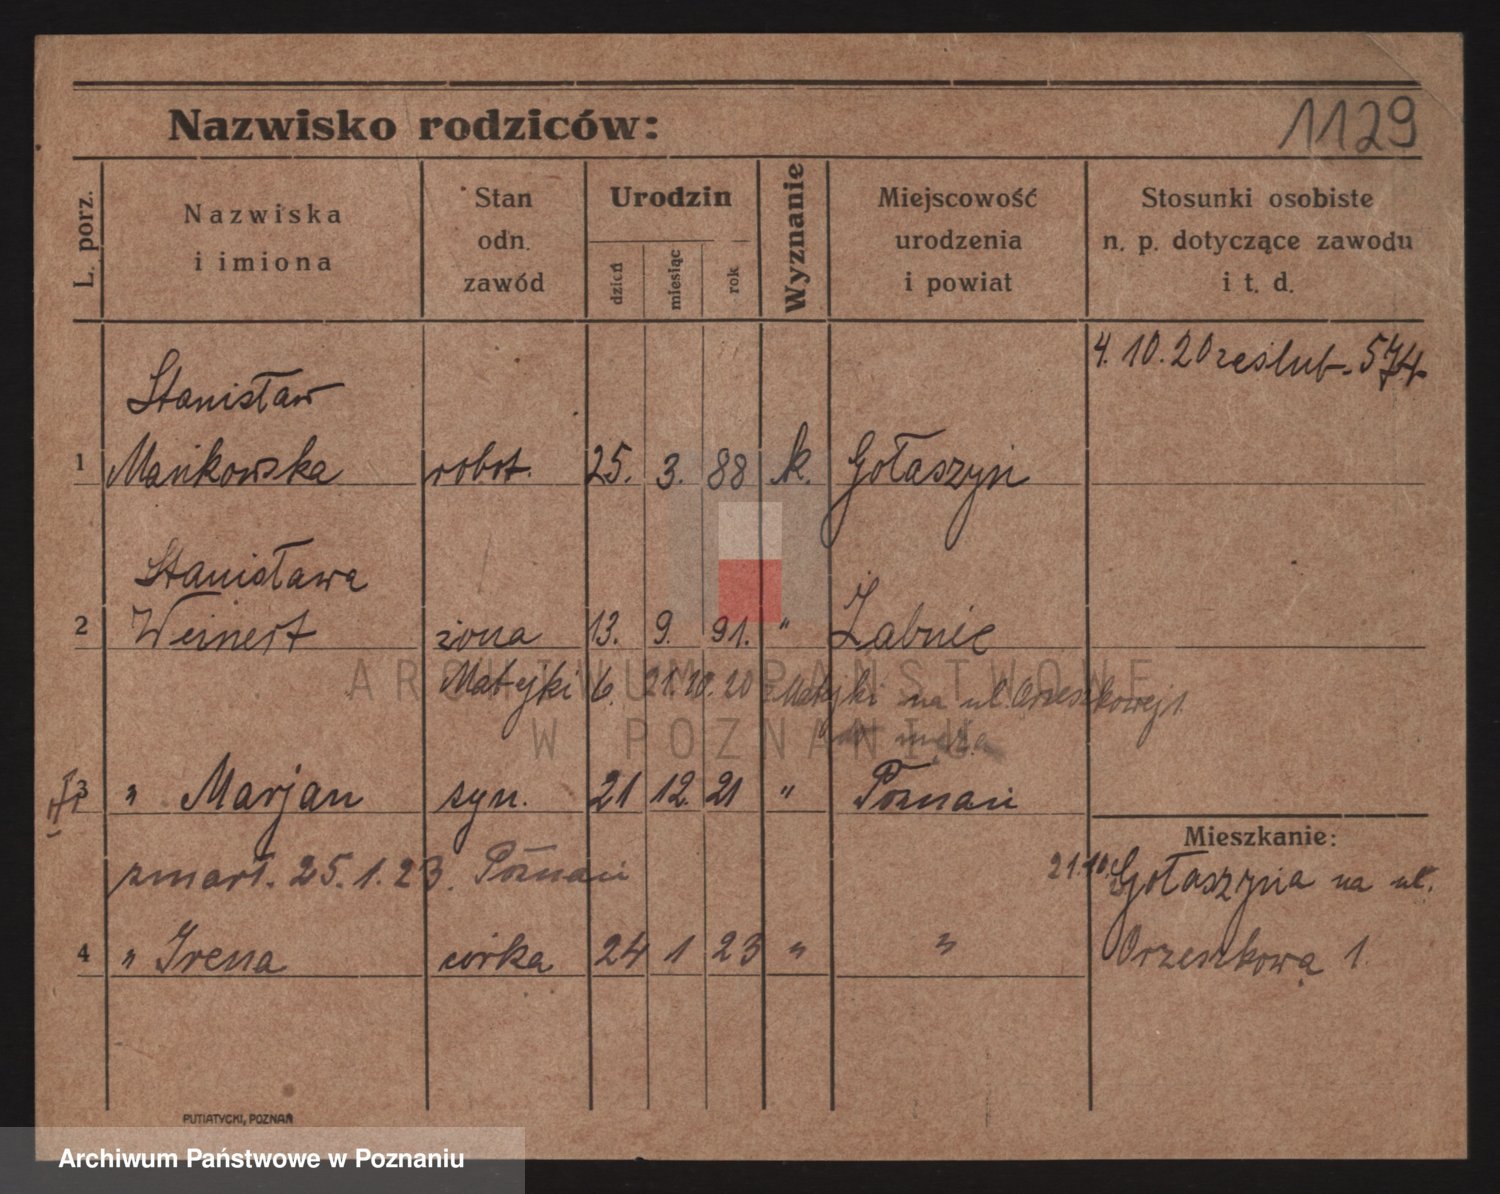 Nazwisko rodziców:
1129
L. porz.
Nazwiska
i imiona
Stan
odn.
zawód
Urodzin
dzień
miesiąc
rok
Wyznanie
Miejscowość
urodzenia
i powiat
Stosunki osobiste
n. p. dotyczące zawodu
i t. d.
4. 10. 20 ześlub. 574
Stanisław
1 Mańkowska robot. 25. 3. 88 k. Gołaszyn
Stanisława
2 Weinert żona 13. 9. 91. " Żabnie
Matejki 6. 21.10.20 z Matejki na ul. Orzeszkowej 1
męża
3 " Marjan syn. 21 12. 21 " Poznań
Mieszkanie:
zmarł. 25. 1. 23. Poznań
21.10. Gołaszyna na ul.
4 " Irena córka 24 1 23 " "
Orzeszkowa 1.
PUTIATYCKI, POZNAŃ
ARCHIWUM PAŃSTWOWE
W POZNANIU
Archiwum Państwowe w Poznaniu